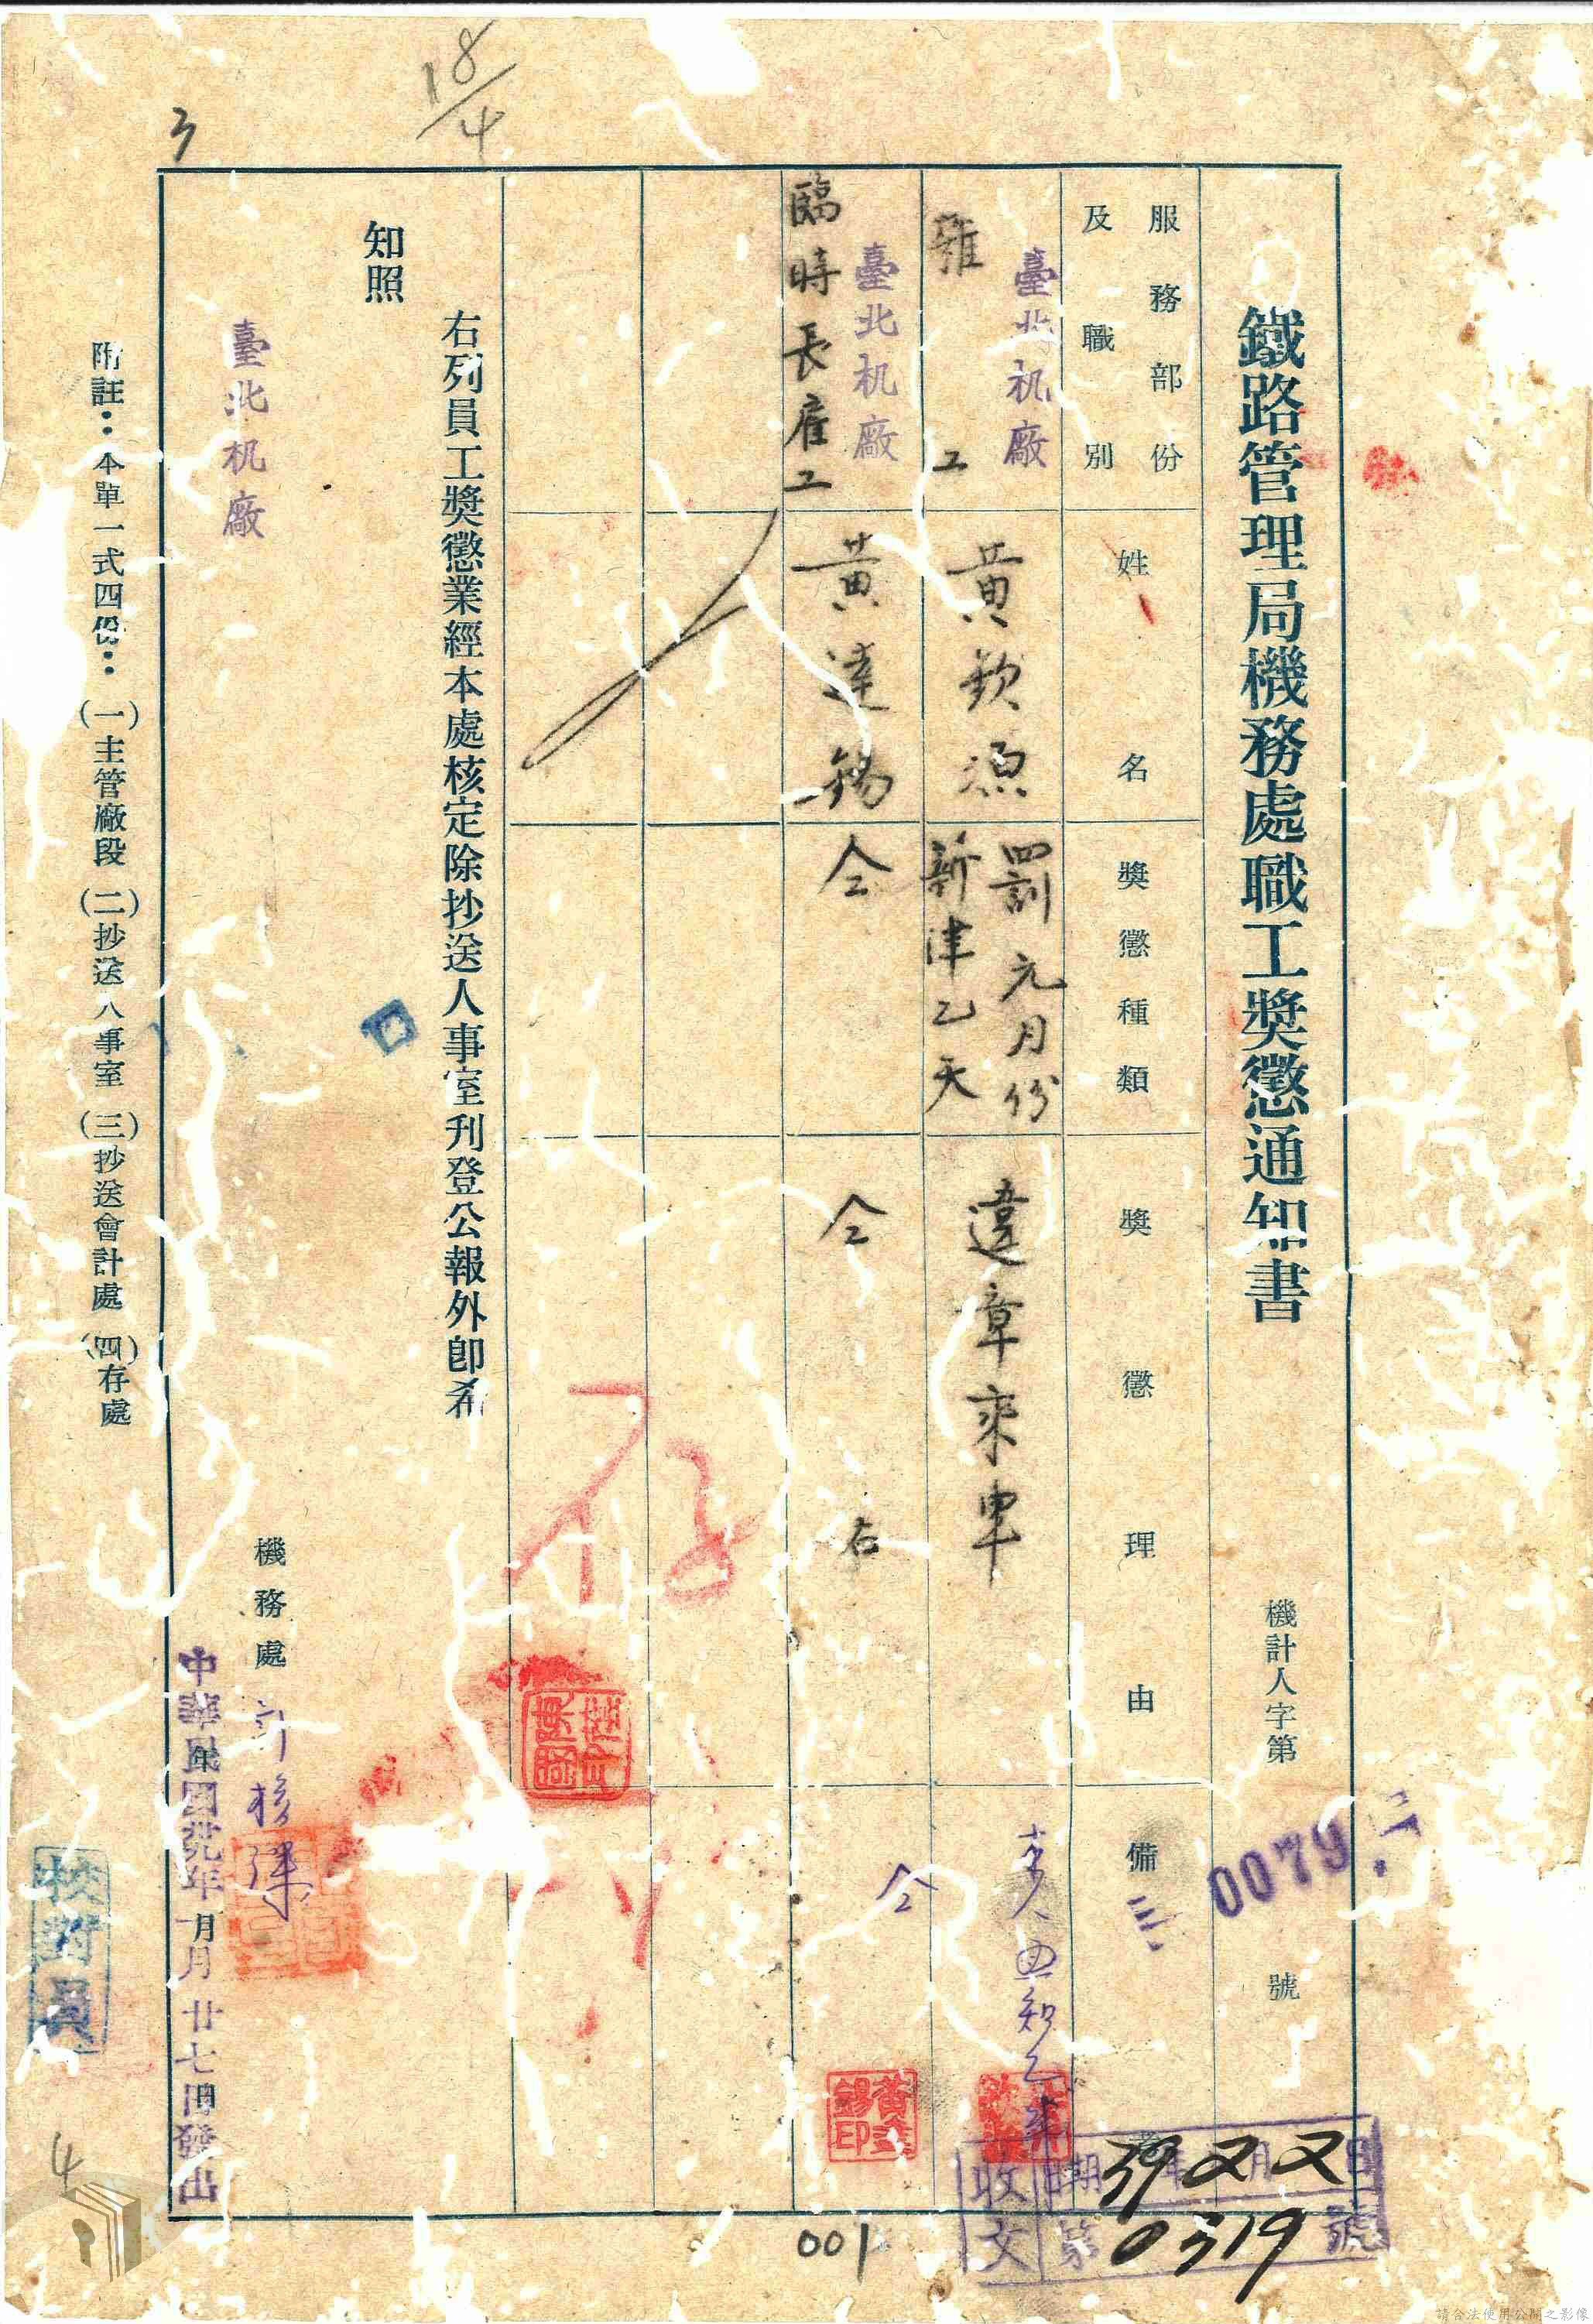 鐵路管理局機務處職工獎懲通知書
機計人字第 0079 號
服務部份
及職別
姓名
獎懲種類
獎懲理由
備
臺北机廠
雇工
黃欽源
罰元月份
薪津乙天
違章乘車
本人已知
臺北机廠
臨時長雇工
黃達錫
仝
仝右
仝
黃達錫印
右列員工獎懲業經本處核定除抄送人事室刊登公報外卽希
知照
臺北机廠
機務處
中華民國卅九年一月廿七日發出
年月日
附註：本單一式四份：(一)主管廠段(二)抄送人事室(三)抄送會計處(四)存處
校對員
收文
日期 39年2月2日
第0319號
001
18/4
3
4
請合法使用公開之影像